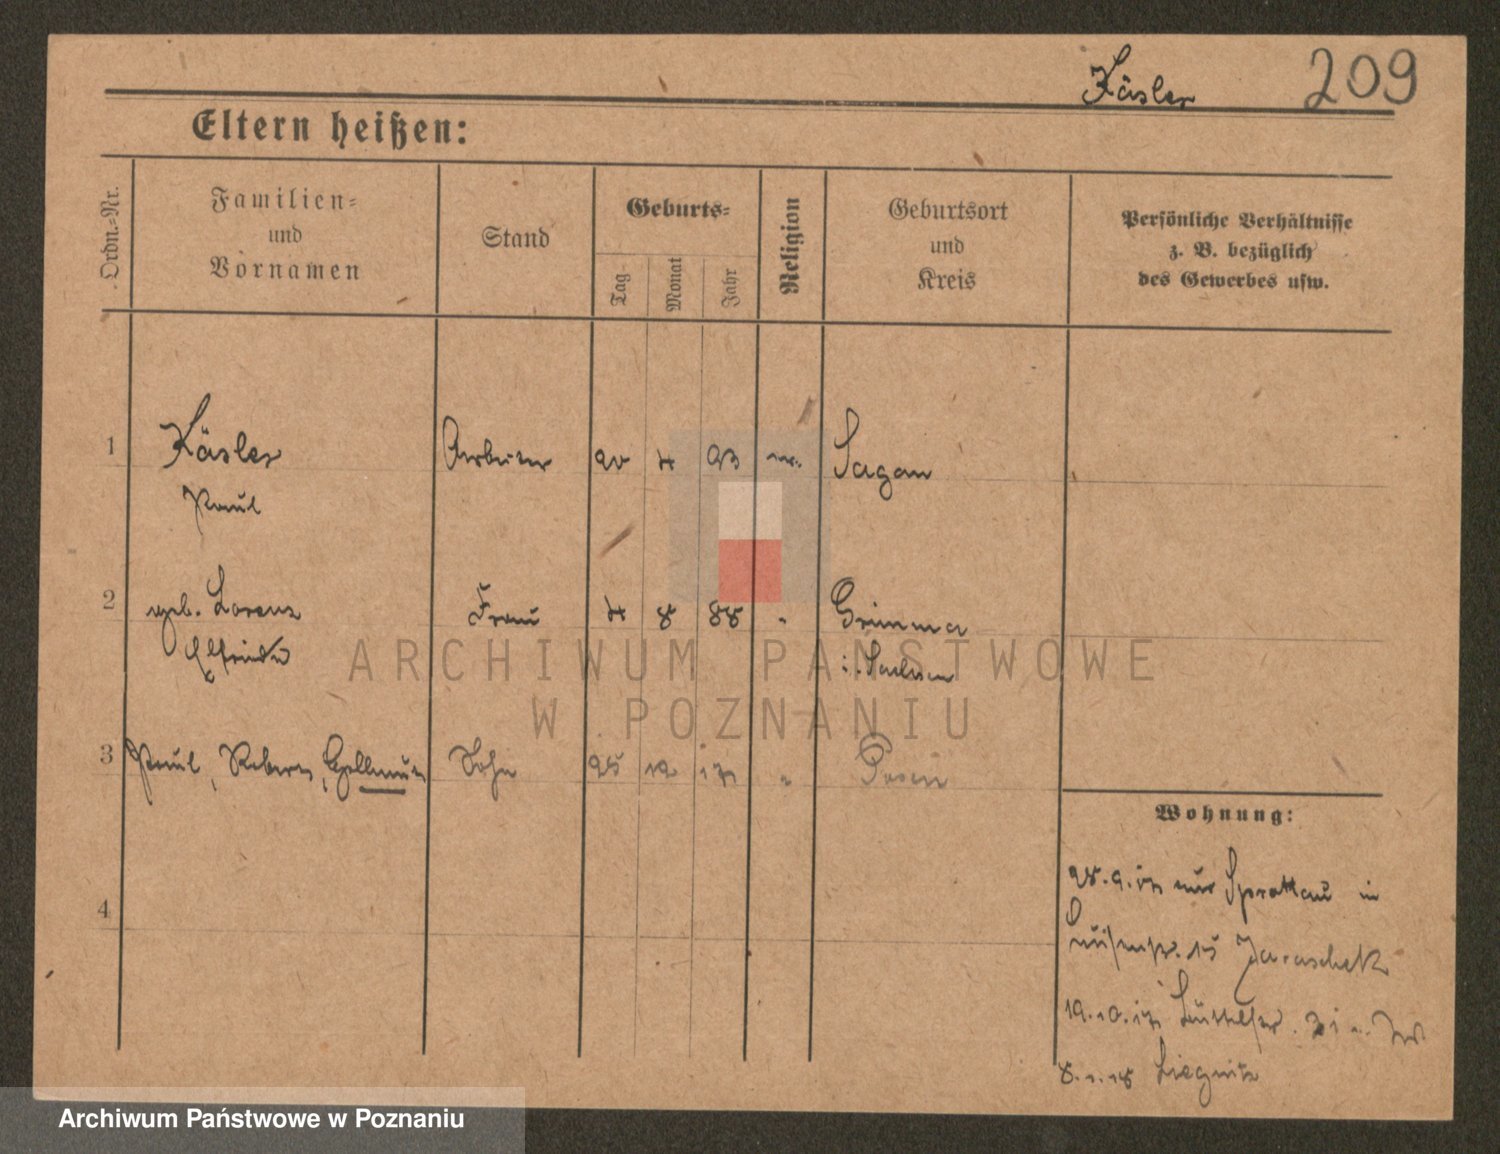 Käsler 209
Eltern heißen:
Ordn.-Nr.
Familien-
und
Vornamen
Stand
Geburts-
Tag
Monat
Jahr
Religion
Geburtsort
und
Kreis
Persönliche Verhältnisse
z. B. bezüglich
des Gewerbes usw.
1 Käsler Arbeiter 20 4 93 Sagan
Paul
2 geb. Lorenz Frau 4 8 88 " Grimma
Elfriede i. Sachsen
3 Paul, Robert, Hellmut Sohn 25 12 17 " Posen
4
Wohnung:
28.9.17 aus Sprottau in
Luisenstr. 15 Jaraschek
19.10.17
8.1.18 Liegnitz
ARCHIWUM PAŃSTWOWE
W POZNANIU
Archiwum Państwowe w Poznaniu